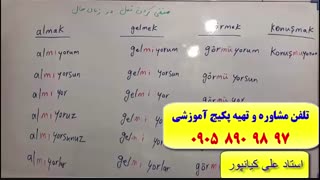 منفی کردن فعل در زمان حال
almak gelmek görmek konuşmak
almıyorum gelmiyorum görmüyorum Konuşmuyorum
almıyorsun gelmiyorsun görmüyorsun
almıyor gelmiyor görmüyor
almıyoruz gelmiyoruz
almıyorsunuz gelmiyor
almıyorlar gelmiyorlar görmüyorlar
تلفن مشاوره و تهیه پکیج آموزشی
۰۹۰۵ ۸۹۰ ۹۸ ۹۷
استاد علی کیانپور